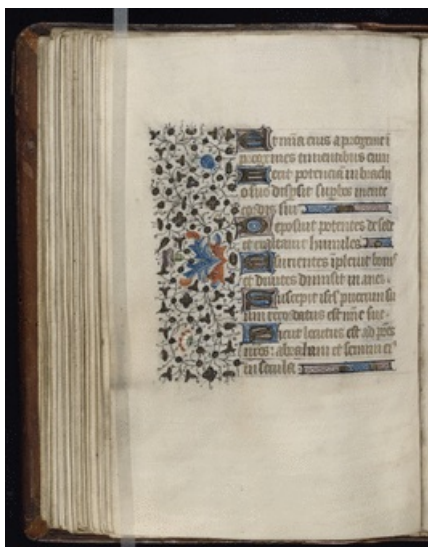 Et mīa eius a progenie ī
progenies timentibus eum
Fecit potencia in brachi
o suo disp̄sit supbos mente
cordis sui
Deposuit potentes de sede
et exaltauit humiles
Esurientes īpleuit bonis
et diuites dimisit inanes.
Suscepit isrl puerum su
um recordatus est mīe sue.
Sicut locutus est ad p̄res
nr̄os: abraham et semini ei9
in secula